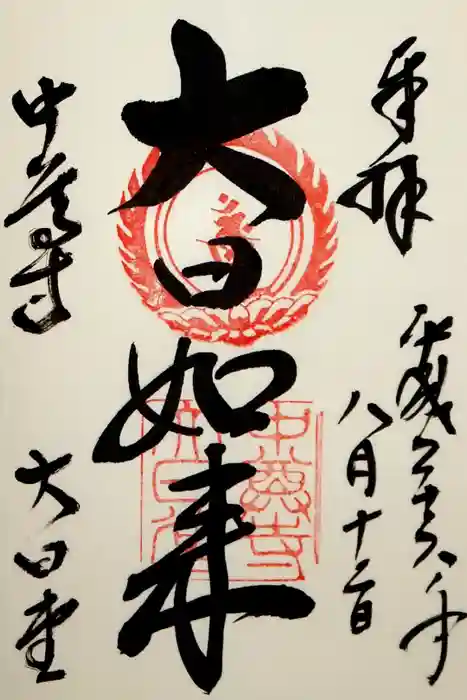 奉拝
平成二十八年
八月十二日
大日如来
中尊寺
大日堂
中尊寺
大日堂